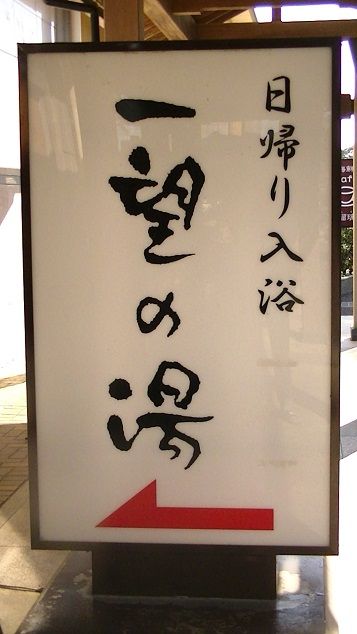 日帰り入浴
一望の湯